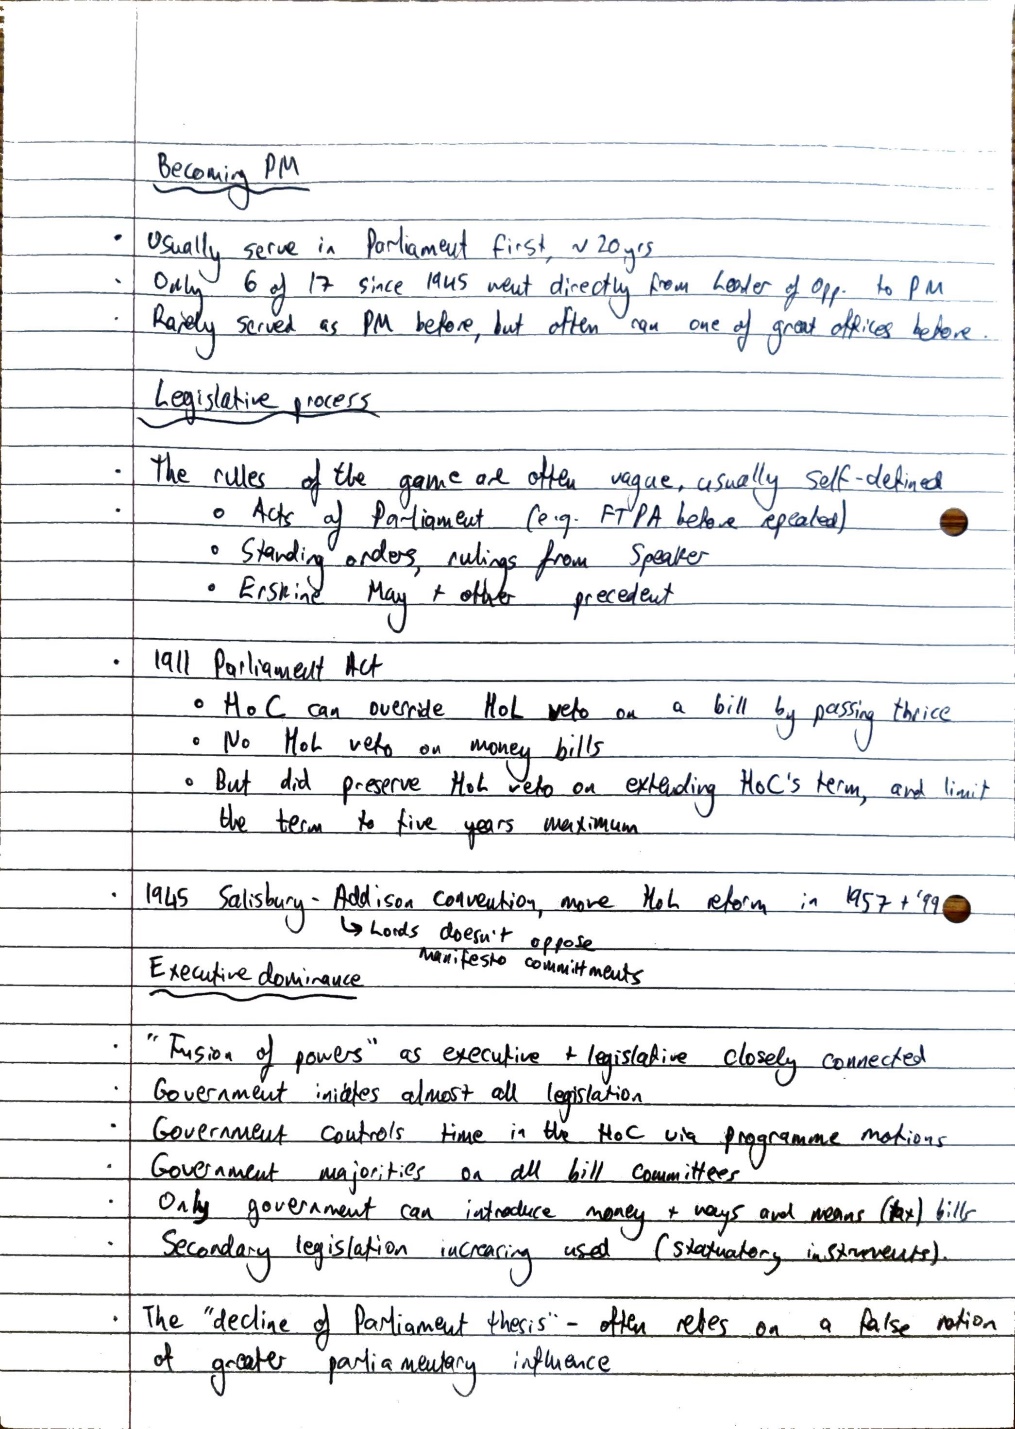 Becoming PM
· Usually serve in Parliament first, ~ 20yrs
· Only 6 of 17 since 1945 went directly from Leader of Opp. to PM
· Rarely served as PM before, but often ran one of great offices before.
Legislative process
· The rules of the game are often vague, usually self-defined
· o Acts of Parliament (e.g. FTPA before repealed)
o Standing orders, rulings from Speaker
o Erskine May + other precedent
· 1911 Parliament Act
o HoC can override HoL veto on a bill by passing thrice
o No HoL veto on money bills
o But did preserve HoL veto on extending HoC's term, and limit
the term to five years maximum
· 1945 Salisbury-Addison convention, more HoL reform in 1957 + '99
↳ Lords doesn't oppose
manifesto committments
Executive dominance
· "Fusion of powers" as executive + legislative closely connected
· Government iniates almost all legislation
· Government controls time in the HoC via programme motions
· Government majorities on all bill committees
· Only government can introduce money + ways and means (tax) bills
· Secondary legislation increasing used (statuatory instruments).
· The "decline of Parliament thesis" - often relies on a false notion
of greater parliamentary influence